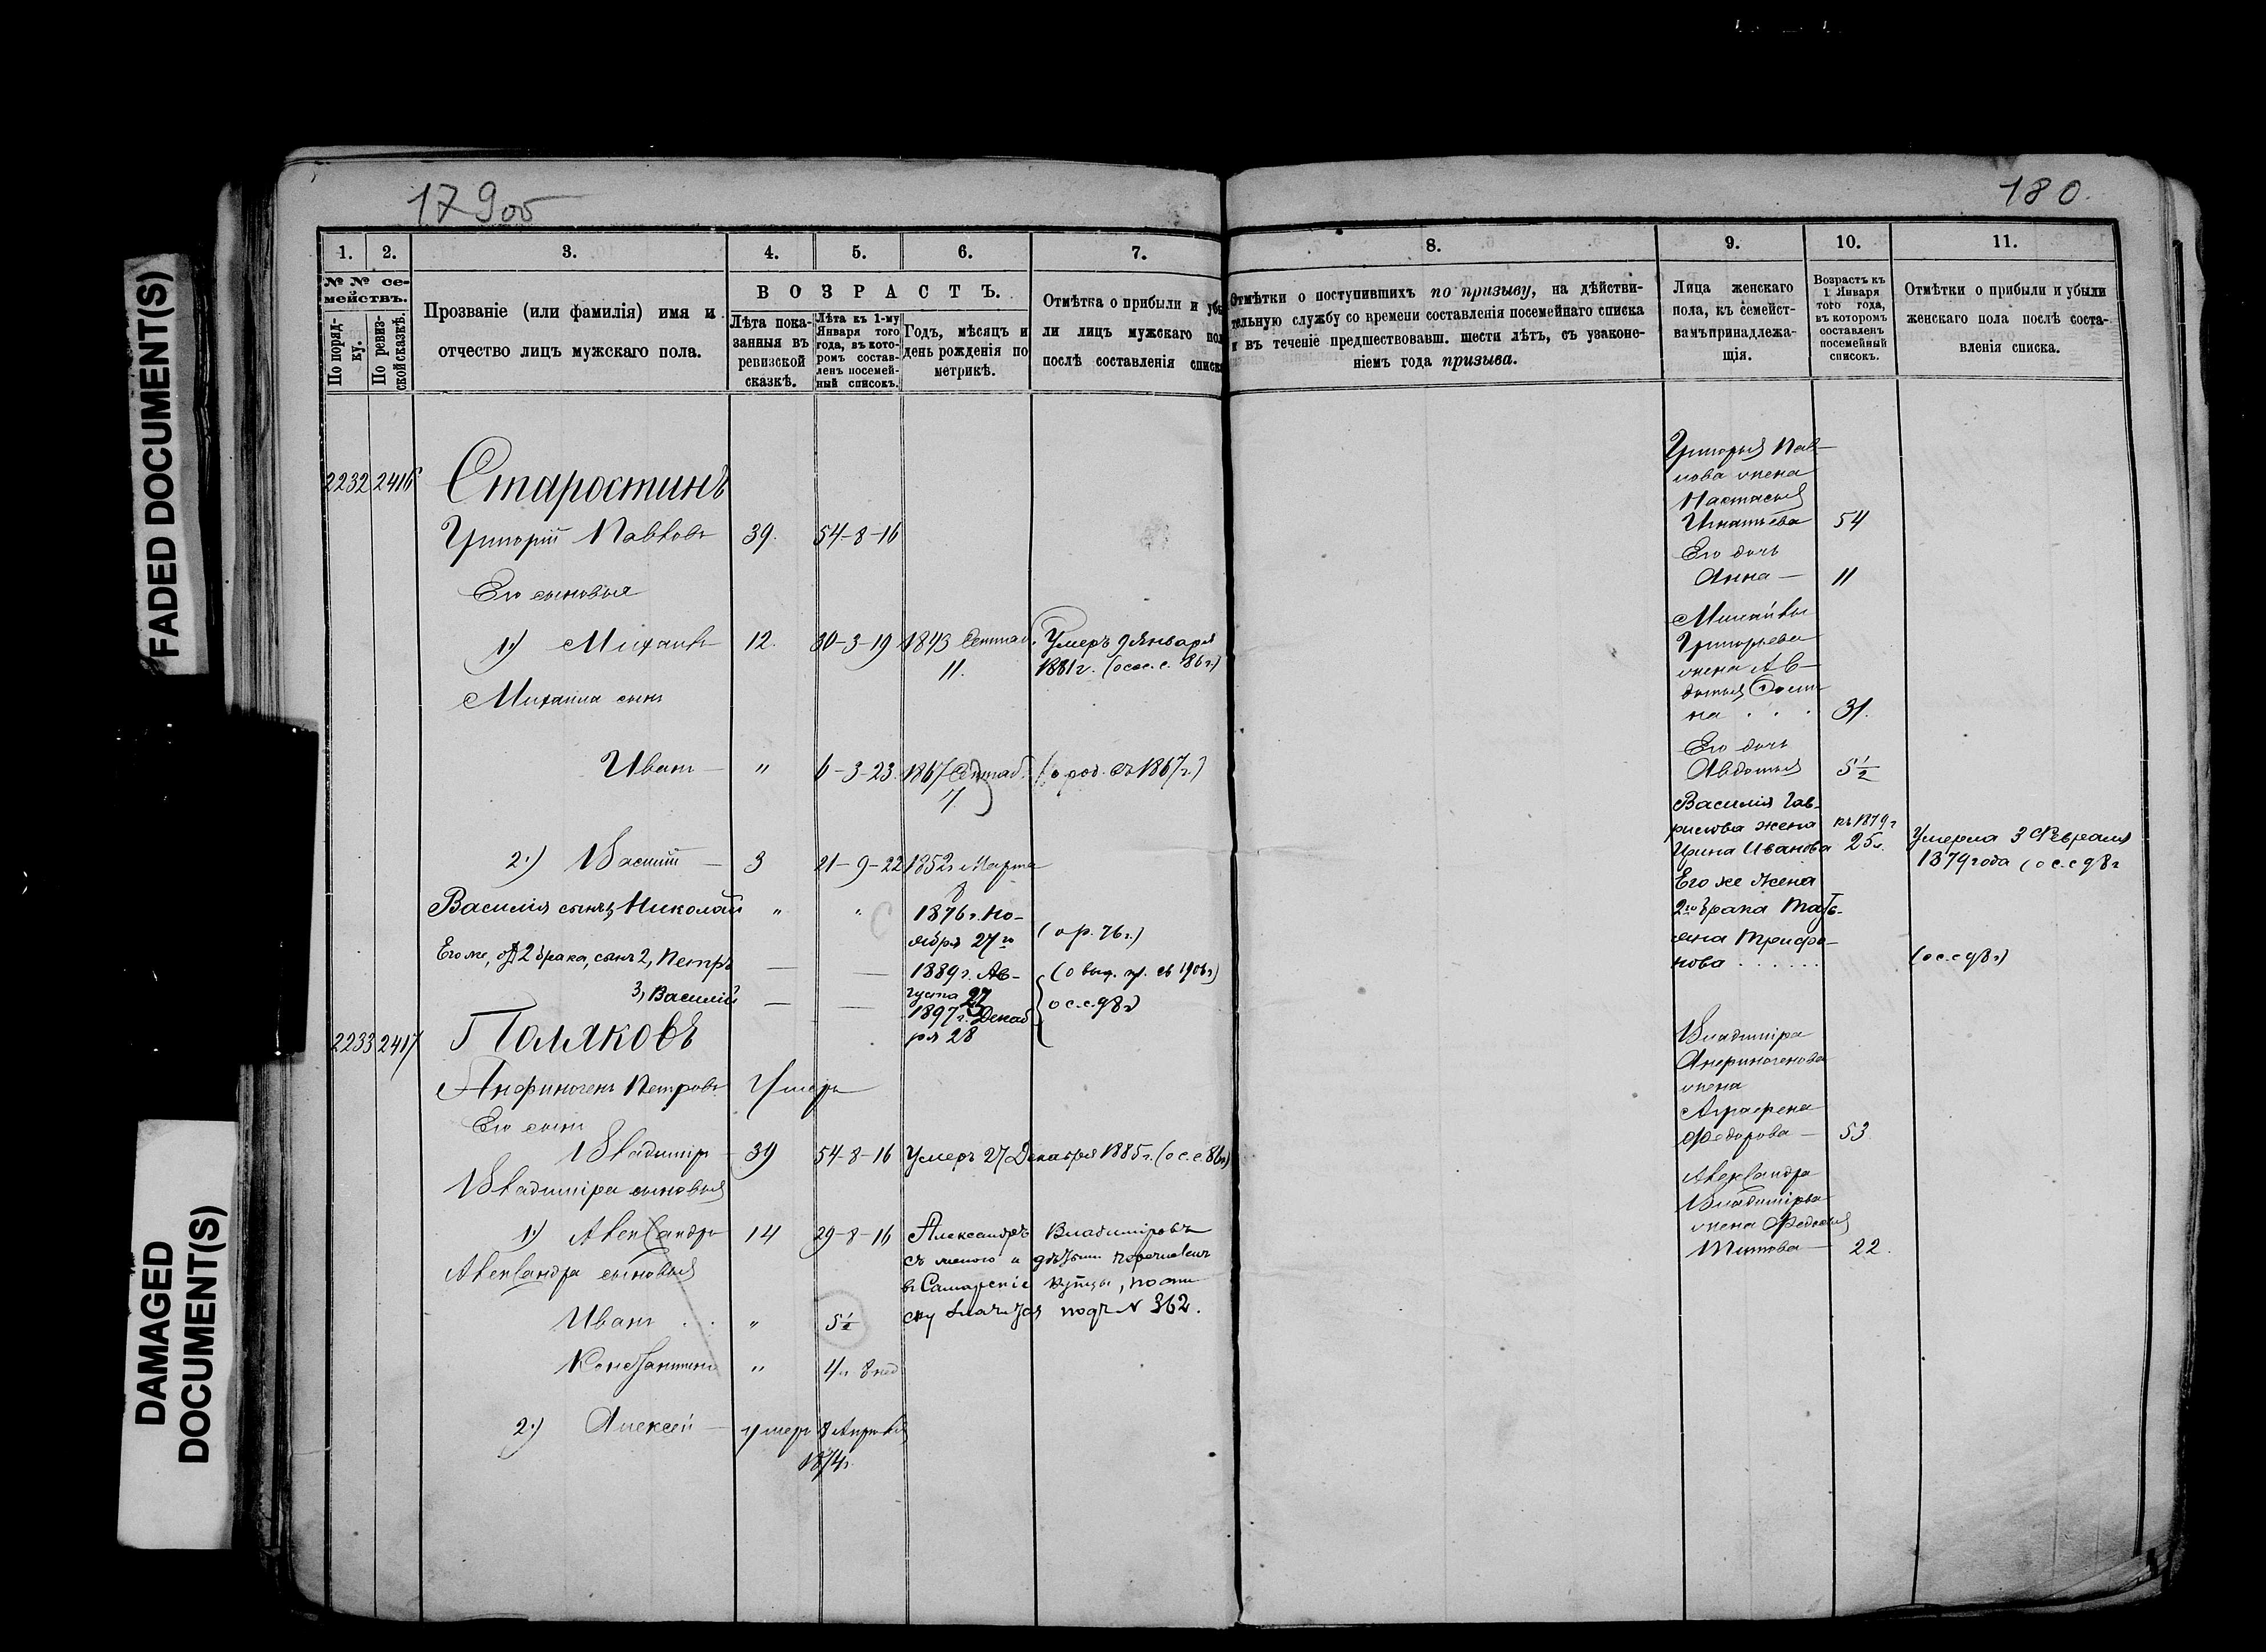 FADED DOCUMENT(S)
DAMAGED
DOCUMENT(S)
179об
1. 2. 3. 4. 5. 6. 7.
№ № се-
мействъ.
По поряд-
ку.
По ревиз-
ской сказкѣ.
Прозваніе (или фамилія) имя и
отчество лицъ мужскаго пола.
ВОЗРАСТЪ.
Лѣта пока-
занныя въ
ревизской
сказкѣ.
Лѣта къ 1-му
Января того
года, въ кото-
ромъ состав-
ленъ посемей-
ный списокъ.
Годъ, мѣсяцъ и
день рожденія по
метрикѣ.
Отмѣтка о прибыли и убы
ли лицъ мужскаго пол
послѣ составленія списка
2232 2416 Старостинъ
Григорій Павловъ 39. 54-8-16
Его сыновья
1.) Михаилъ 12. 30-3-19 1843 Сентяб. Умеръ 9 Января
11. 1881 г. (о с. с. 86 г.)
Михаила сынъ
Иванъ — " 6-3-23. 1867 Сентяб. (о род. съ 1867 г.)
2.) Василій — 3 21-9-22 1852 г Марта
8
Василія сынъ, Николай " " 1876 г. Но-
ября 27 го (о р. 76 г.)
Его же, отъ 2 брака, сынъ 2, Петръ — — 1889 г. Ав-
густа 27
3, Василій — — 1897 г. Декаб
ря 28
о с. с. 98 г)
2233 2417 Поляковъ
Анфиногенъ Петровъ Умеръ
Его сынъ
Владиміръ — 39 54-8-16 Умеръ 27 Декабря 1885 г. (о с. с. 86 г)
Владиміра сыновья
1.) Александръ 14 29-8-16 Александръ Владиміровъ
съ женою и дѣтьми перечисленъ
въ Самарскіе купцы, по спи
ску значится подъ № 362.
Александра сыновья
Иванъ . . " 5½
Константинъ " 4 г. 8 нед
2.) Алексѣй — умеръ 8 Апрѣля
1874 г.
180.
8. 9. 10. 11.
Отмѣтки о поступившихъ по призыву, на дѣйстви-
тельную службу со времени составленія посемейнаго списка
и въ теченіе предшествовавш. шести лѣтъ, съ узаконе-
ніемъ года призыва.
Лица женскаго
пола, къ семейст-
вамъ принадлежа-
щія.
Возрастъ къ
1 Января
того года,
въ которомъ
составленъ
посемейный
списокъ.
Отмѣтки о прибыли и убыли
женскаго пола послѣ соста-
вленія списка.
Григорья Пав-
лова жена
Настасья
Игнатьева 54
Его дочь
Анна — 11
Михайлы
Григорьева
жена Ав-
дотья
на . . . 31.
Его дочь
Авдотья 5½
Василія Гри-
рьева жена къ 1879 г
Ирина Иванова 25 л. Умерла 3 Февраля
1879 года (о с. с 98 г
Его же жена
2го брака Тать-
яна Трифо-
нова . . . . . . (о с. с 98 г)
Владиміра
Анфиногенова
жена
Аграфена
Федорова — 53.
Александра
Владимірова
жена Федосья
Титова — 22.